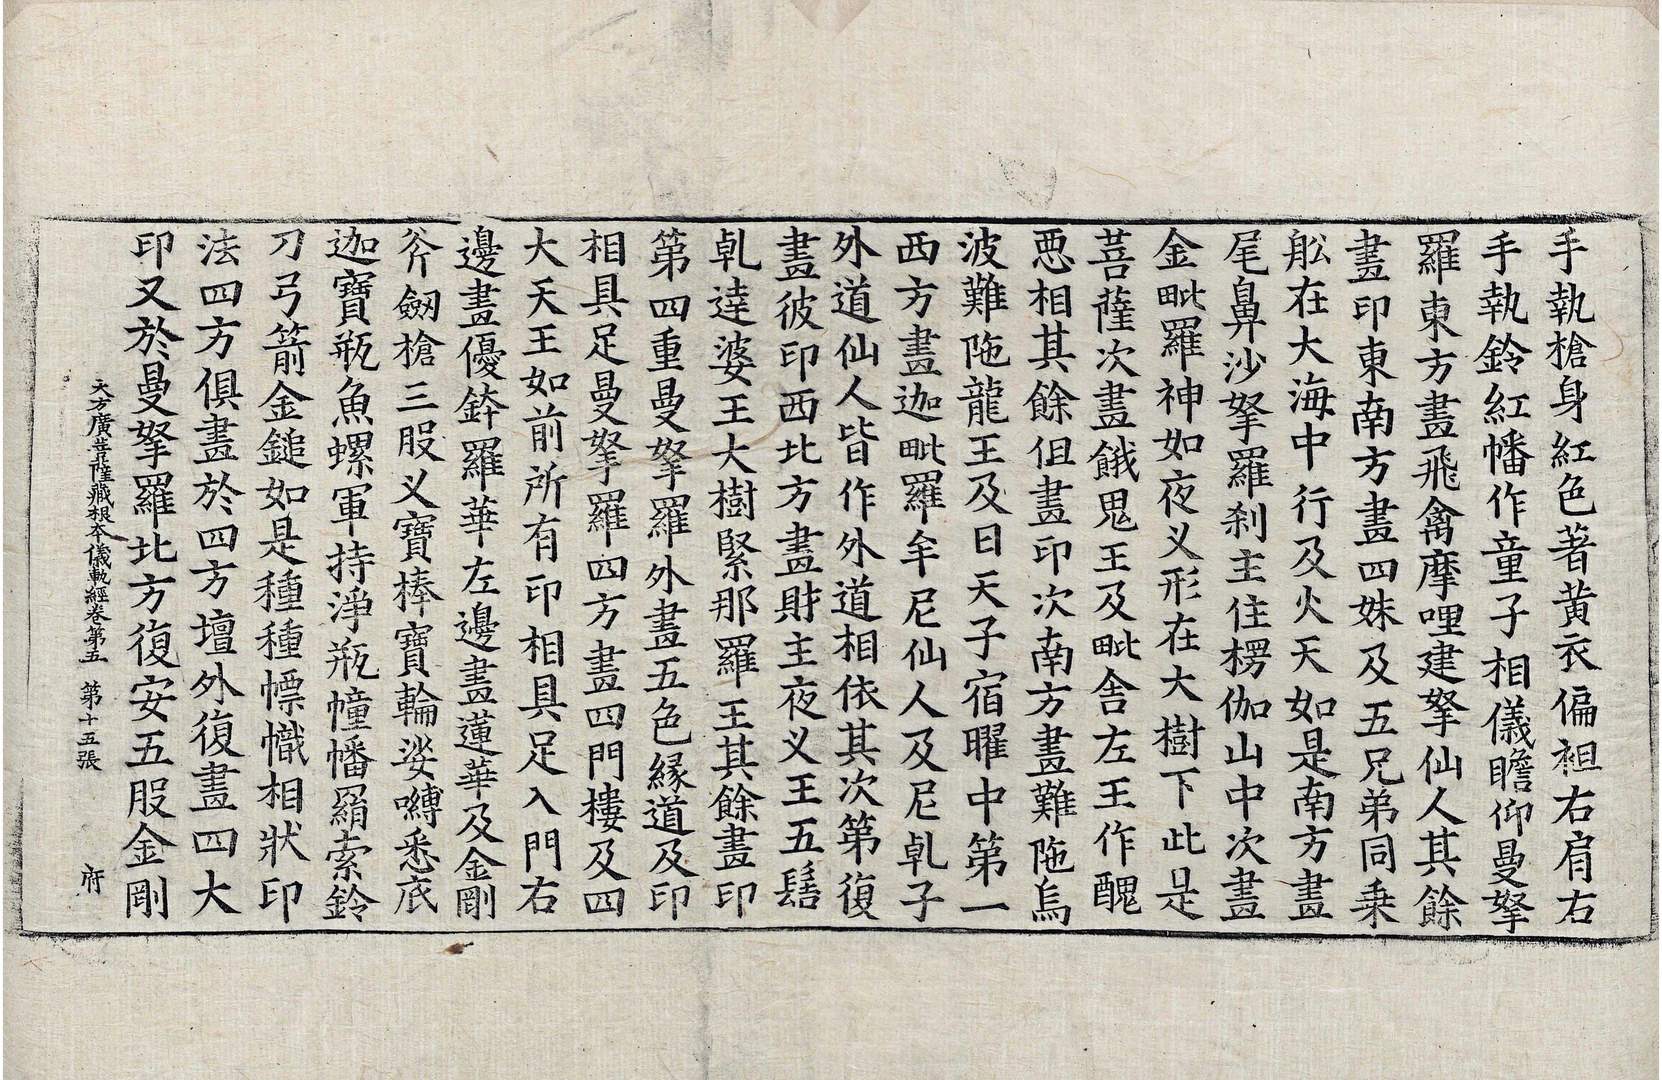 手執槍身紅色著黃衣偏袒右肩右
手執鈴紅幡作童子相儀瞻仰曼拏
羅東方畫飛禽摩哩建拏仙人其餘
畫印東南方畫四妹及五兄弟同乗
舩在大海中行及火天如是南方畫
尾鼻沙拏羅刹主住楞伽山中次畫
金毗羅神如夜叉形在大樹下此是
菩薩次畫餓鬼王及毗舍左王作醜
惡相其餘但畫印次南方畫難陁烏
波難陁龍王及日天子宿曜中第一
西方畫迦毗羅牟尼仙人及尼乹子
外道仙人皆作外道相依其次第復
畫彼印西北方畫財主夜叉王五髻
乹達婆王大樹緊那羅王其餘畫印
第四重曼拏羅外畫五色緣道及印
相具足曼拏羅四方畫四門樓及四
大天王如前所有印相具足入門右
邊畫優鉢羅華左邊畫蓮華及金剛
斧劔槍三股叉寶棒寶輪娑嚩悉底
迦寶瓶魚螺軍持淨瓶幢幡羂索鈴
刀弓箭金鎚如是種種幖幟相狀印
法四方俱畫於四方壇外復畫四大
印又於曼拏羅北方復安五股金剛
大方廣菩薩藏根本儀軌經卷第五 第十五張 府